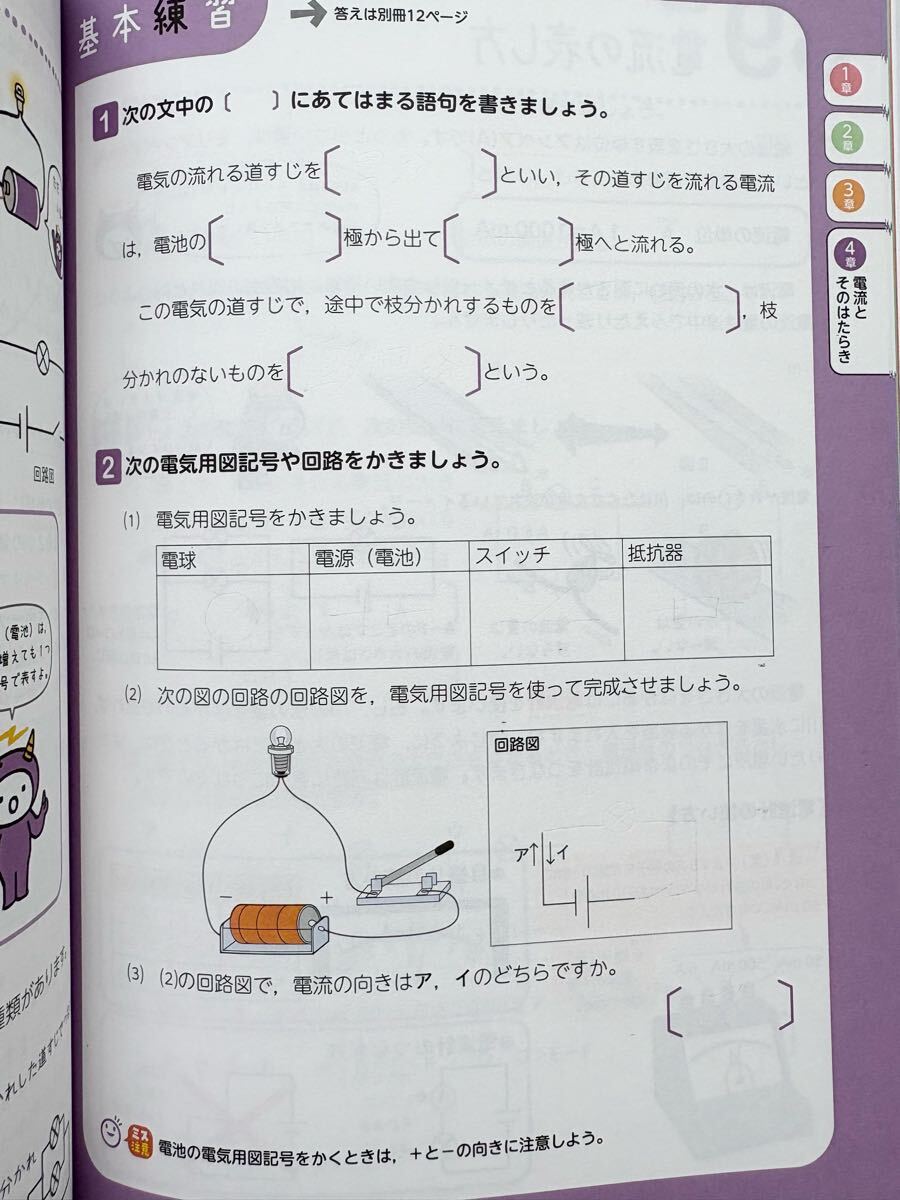 基本練習
→ 答えは別冊12ページ
1章
2章
3章
4章
電流と
そのはたらき
1 次の文中の〔　　〕にあてはまる語句を書きましょう。
電気の流れる道すじを〔　　　　〕といい，その道すじを流れる電流
は，電池の〔　　　〕極から出て〔　　　〕極へと流れる。
この電気の道すじで，途中で枝分かれするものを〔　　　　〕，枝
分かれのないものを〔　　　　〕という。
2 次の電気用図記号や回路をかきましょう。
(1) 電気用図記号をかきましょう。
電球 電源（電池） スイッチ 抵抗器
(2) 次の図の回路の回路図を，電気用図記号を使って完成させましょう。
回路図
ア↑ ↓イ
− +
(3) (2)の回路図で，電流の向きはア，イのどちらですか。
〔　　　　〕
ミス注意
電池の電気用図記号をかくときは，＋と−の向きに注意しよう。
回路図
（電池）は，
増えても1つ
号で表すよ。
種類があります。
かれした道すじで
分かれ